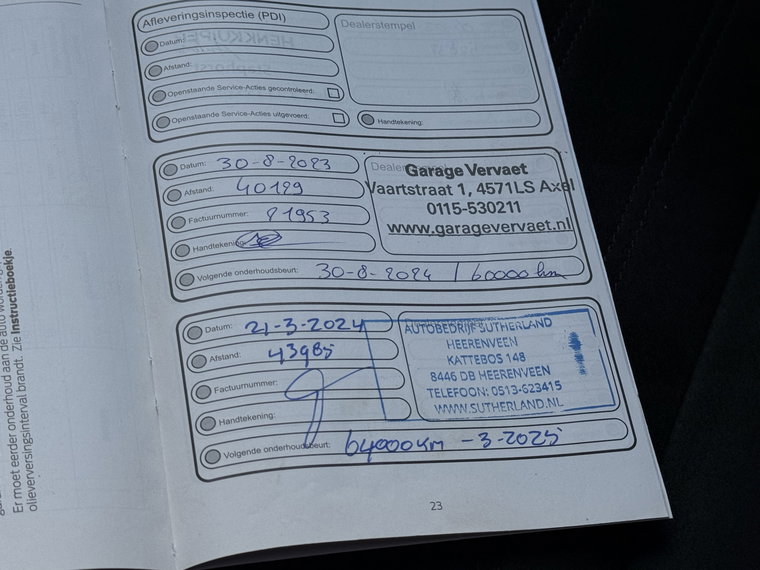 Er moet eerder onderhoud aan de auto worden
olieverversingsinterval brandt. Zie Instructieboekje.
Afleveringsinspectie (PDI)
Datum:
Afstand:
Openstaande Service-Acties gecontroleerd:
Openstaande Service-Acties uitgevoerd:
Dealerstempel
Handtekening:
Datum: 30-8-2023
Afstand: 40129
Factuurnummer: 81953
Handtekening:
Volgende onderhoudsbeurt: 30-8-2024 / 60000 km
Garage Vervaet
Vaartstraat 1, 4571LS Axel
0115-530211
www.garagevervaet.nl
Datum: 21-3-2024
Afstand: 43985
Factuurnummer:
Handtekening:
Volgende onderhoudsbeurt: 64000km -3-2025
AUTOBEDRIJF SUTHERLAND
HEERENVEEN
KATTEBOS 148
8446 DB HEERENVEEN
TELEFOON: 0513-623415
WWW.SUTHERLAND.NL
23